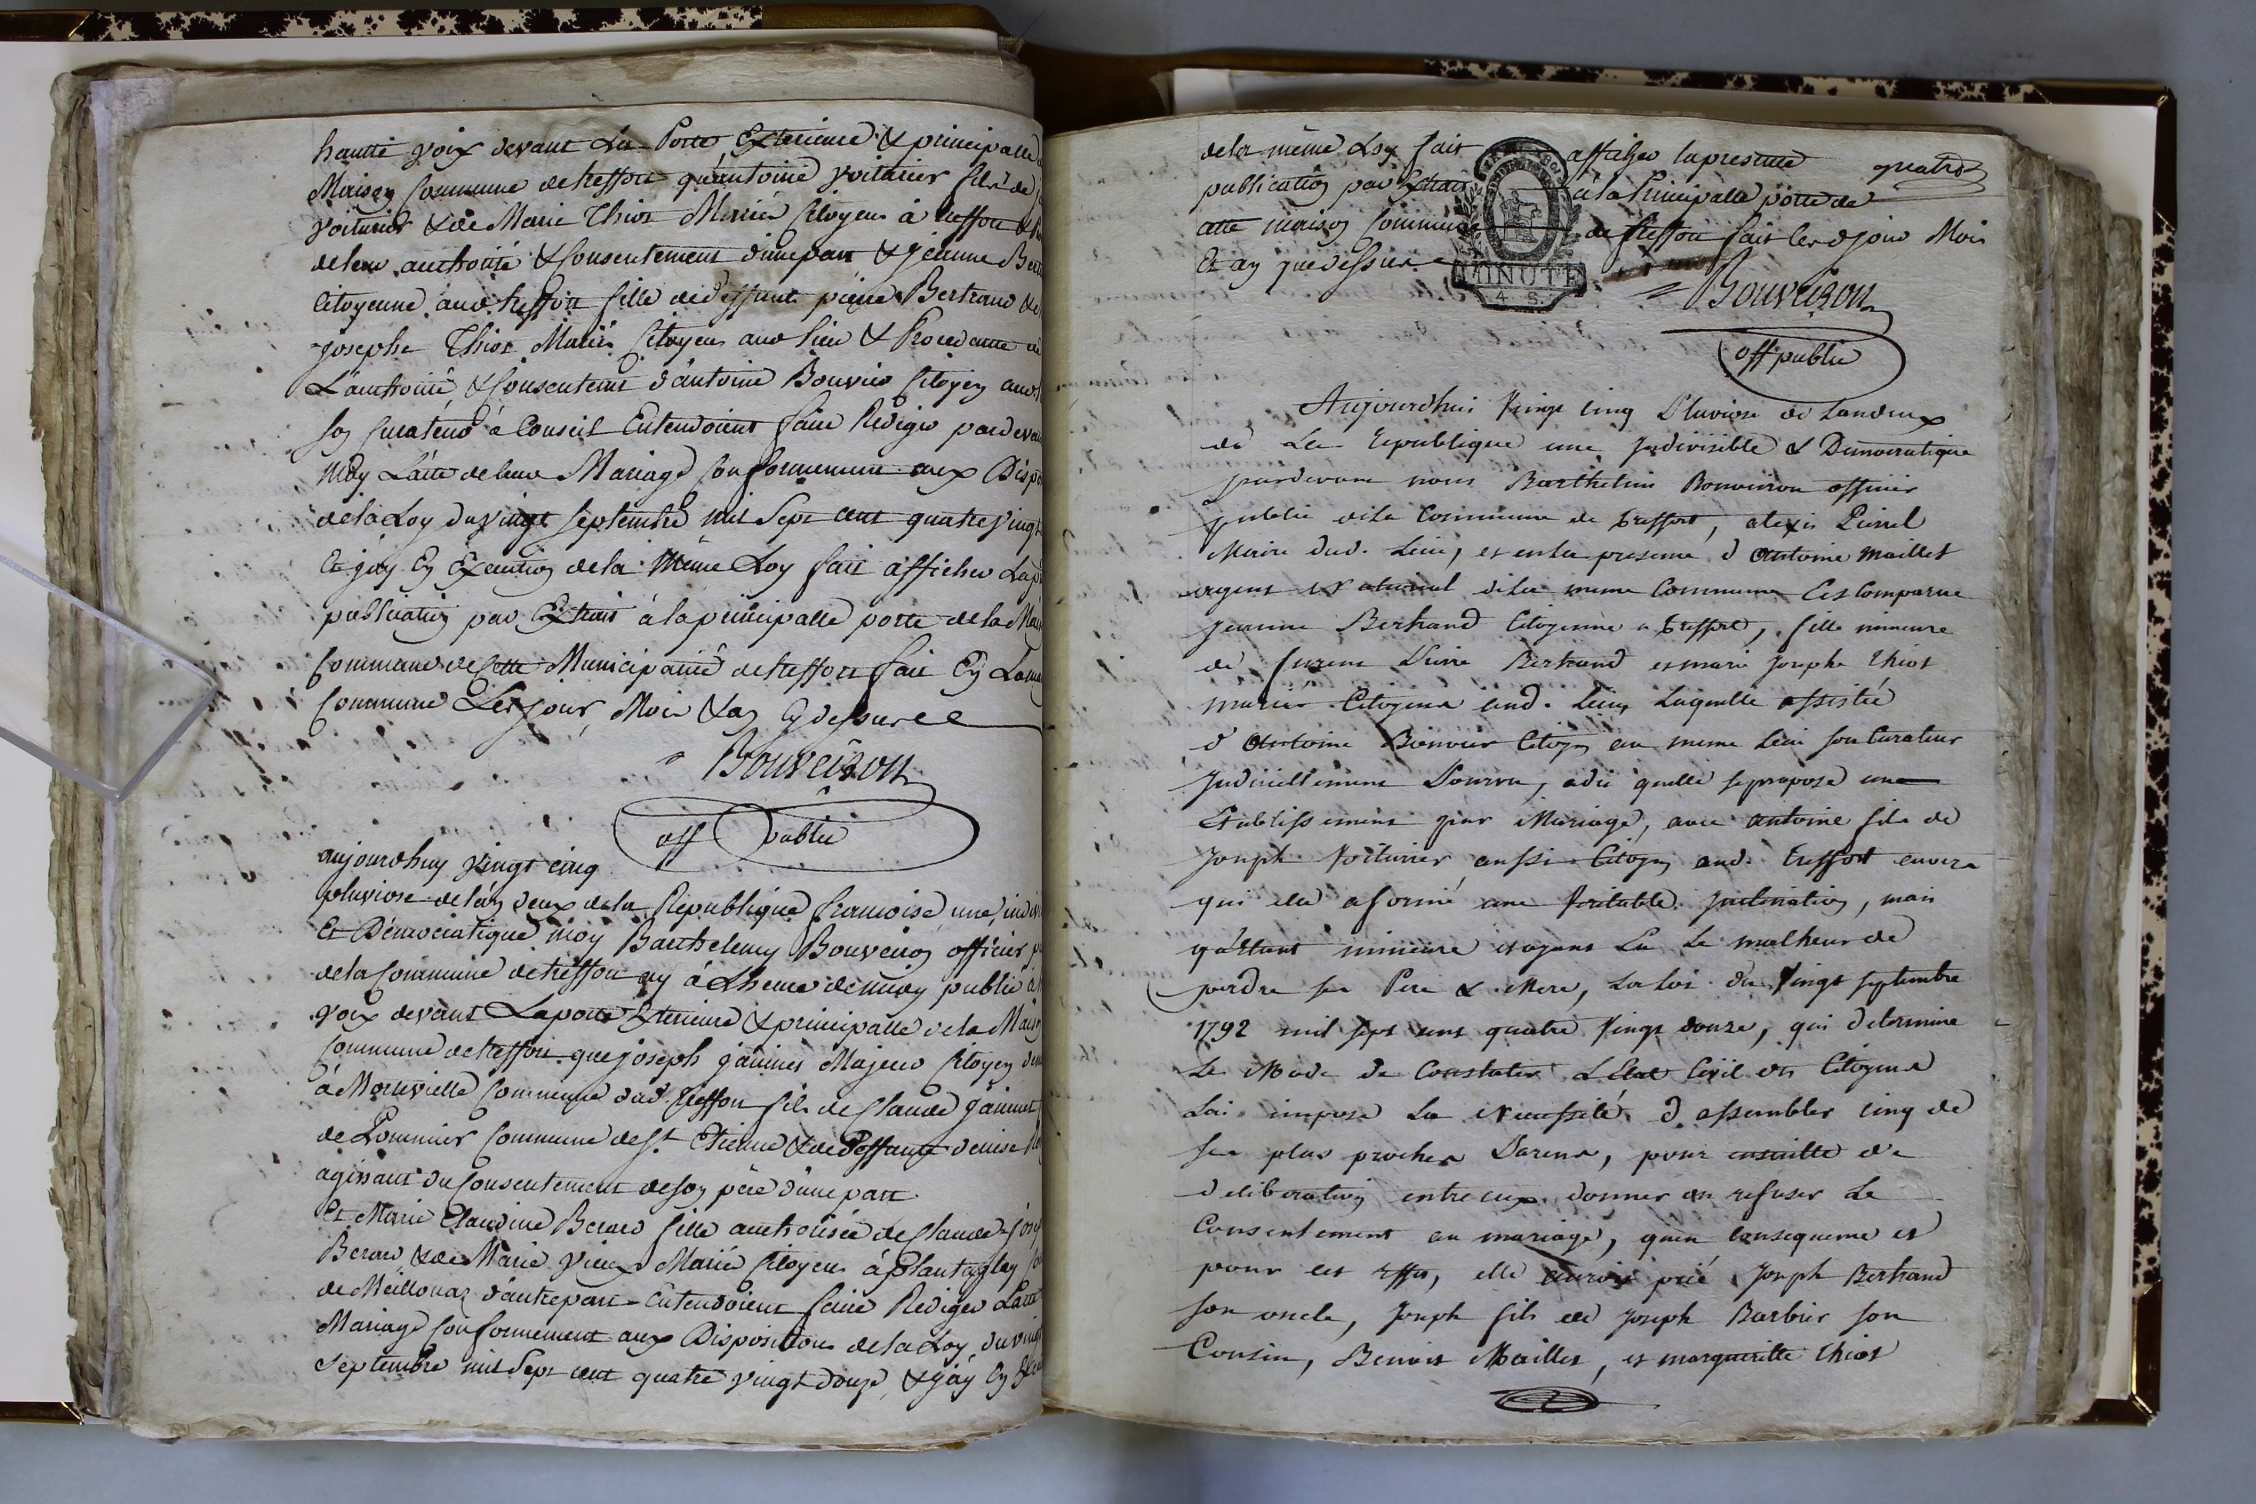 hautte voix devant La Porte Exterieure & principalle
Maison Commune de treffort qu'antoine voiturier fils de
voiturier & de Marie Thiot Mariés Citoyens à treffort &
de leur authorité & Consentement d'une part & jeanne Bert
Citoyenne aud treffort fille de deffunt pierre Bertrand &
josephe Thiot Mariés Citoyens aud lieu & Procedante
L'authorité & Consentemt d'antoine Bouvier Citoyen aud
son Curateur à Conseil Entendoient faire Rediger pardevan
moy L'acte de leur Mariage Conformement aux Dispo
de la Loy du vingt septembre mil sept cent quatre vingt
Et j'ay En Execution de la même Loy fait afficher La p
publication par Extrait à la principalle porte de la Mai
Commune de Cette Municipalité de treffort fait En La
Commune Les jour, Mois & an Cy dessus
Bouveiron
off public
aujourdhuy vingt cinq
pluviose de l'an deux de la République francoise une, indiv
Et Démocratique moy Barthelemy Bouveiron officier p
de la Commune de treffort ay à L'heure de midy publié à
voix devant La porte Exterieure & principalle de la Maison
Commune de treffort que joseph janinet Majeur Citoyen
à Montvielle Commune dud. treffort fils de Claude janinet
de Pommier Commune de St. Etienne & de Deffunte denise
agissant du Consentement de son père d'une part
Et Marie Claudine Berard fille authorisée de Claude jos
Berard & de Marie vieux Mariés Citoyens à Plantaglay
de Meillonaz d'autre part Entendoient faire Rediger L'acte
Mariage Conformement aux Dispositions de la Loy du vingt
Septembre mil Sept cent quatre vingt douze, & j'ay En
quatre
de la même Loy fait afficher la presente
publication par Extrait à la Principalle porte de
cette maison Commune de treffort fait les d jour Mois
Et an que dessus
MINUTE
4. S.
Bouveiron
off public
Aujourdhui vingt cinq Pluviose de Landeux
de La republique une, Indivisible & Democratique
pardevant nous Barthelemi Bouveiron officier
public de la Commune de treffort, alexis Pirrel
Maire dud. Lieu, et en la presence d'Antoine Maillet
agent national de la meme Commune Est Comparue
Jeanne Bertrand Citoyenne a treffort, fille mineure
de furent Pierre Bertrand et marie Josephe thiot
mariés Citoyens aud. Lieu, Laquelle assistée
d'Antoine Bouvier Citoyen au meme Lieu son Curateur
Judiciellement Pourvu, a dit quelle se propose un
Etablissement par Mariage, avec antoine fils de
Joseph voiturier aussi Citoyen aud. treffort envers
qui elle a formé une veritable Inclination, mais
qu'étant mineure et ayant Eu Le malheur de
perdre ses Pere & Mere, La Loi du vingt septembre
1792 mil sept cent quatre vingt douze, qui determine
Le Mode de Constater L'Etat Civil des Citoyens
Lui impose La necessité d'assembler cinq de
ses plus proches Parens, pour ensuitte de
deliberation entre eux donner ou refuser Le
Consentement au mariage, qu'en consequence et
pour cet effet, elle auroit prié Joseph Bertrand
son oncle, Joseph fils de Joseph Barbier son
Cousin, Benoit Maillet, et marguerite thiot